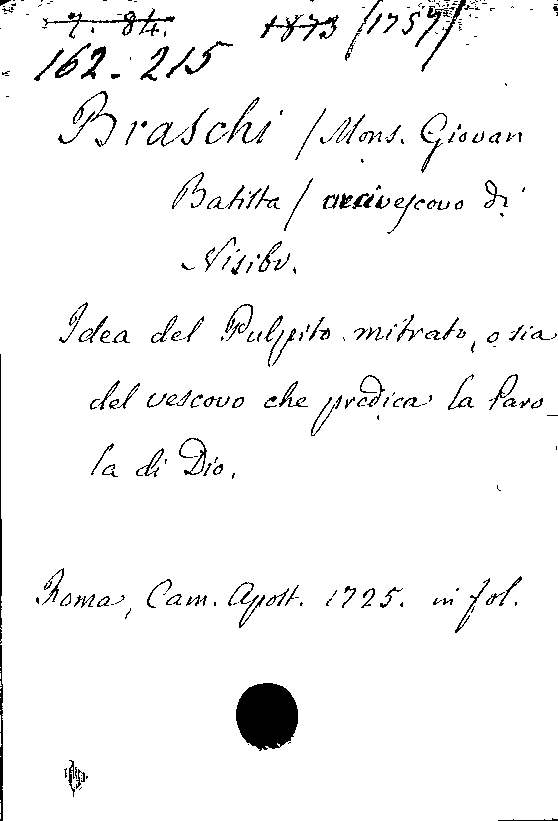 7. 84. 1873 /1757/
162. 215
Braschi /Mons. Giovan
Batista/ arcivescovo di
Nisibo.
Idea del Pulpito mitrato, o sia
del vescovo che predica la Paro_
la di Dio.
Roma, Cam. Apost. 1725. in fol.